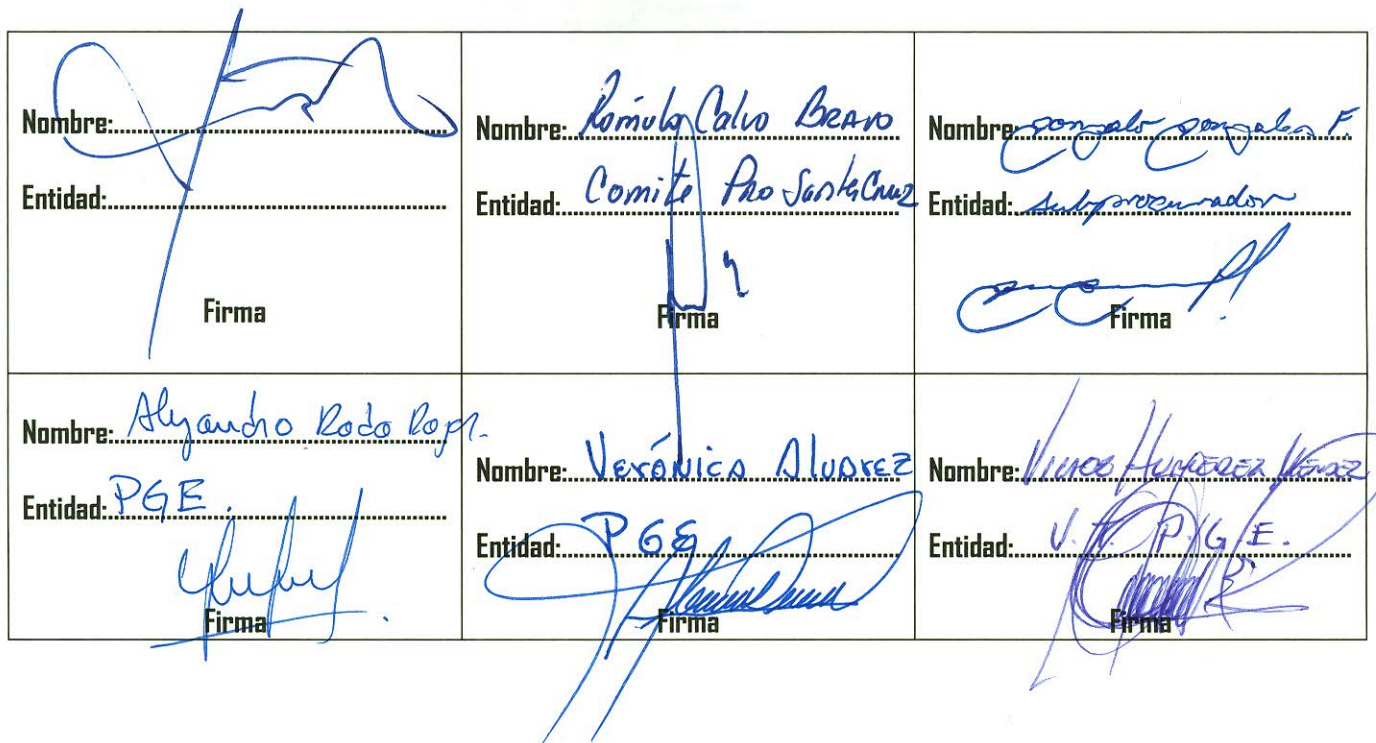 Nombre:
Entidad:
Firma
Nombre: Rómulo Calvo Bravo
Entidad: Comite Pro Santa Cruz
Firma
Nombre: gonzalo gonzales F.
Entidad: Subprocurador
Firma
Nombre: Alejandro Roda
Entidad: PGE.
Firma
Nombre: Verónica Alvarez
Entidad: PGE
Firma
Nombre:
Entidad: P.G.E.
Firma